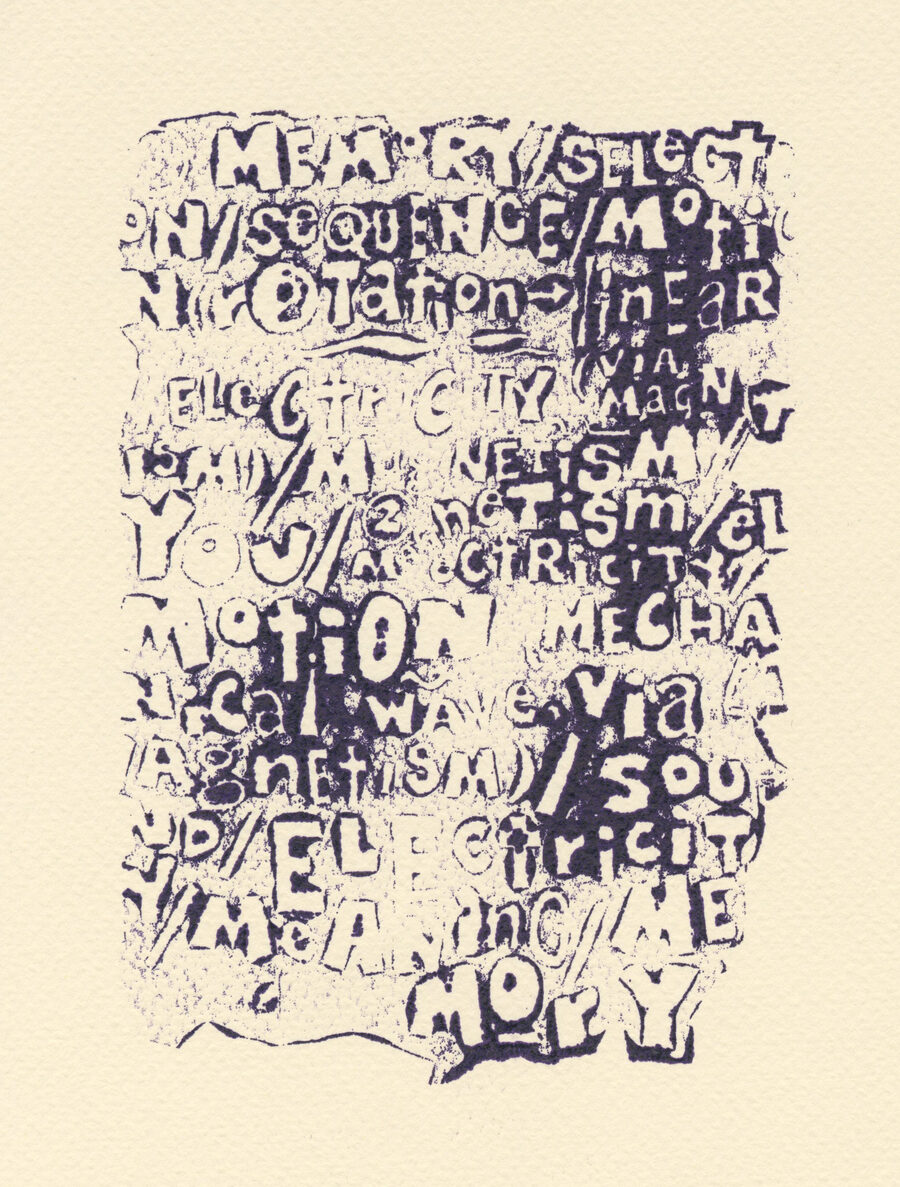 MEMORY/SELECT
ON/SEQUENCE/MOTiO
N(rOTaTion→linEaR
ELECTRICITY (VIA
MagNET
ISM)/MAGNETiSM/
YOU/2 netism/el
MagectRiciTy/
MOTiON MECHA
Nical wAVe, Via
MAgnETiSM)/SOU
ND/ELECtriciT
Y/MeANinG//ME
MOrY